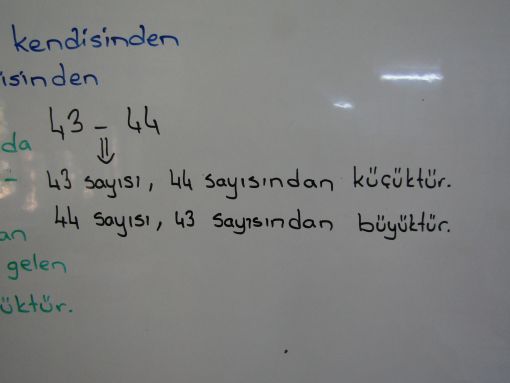 kendisinden
isinden
43 - 44
da
43 sayısı, 44 sayısından küçüktür.
44 sayısı, 43 sayısından büyüktür.
an
gelen
üktür.